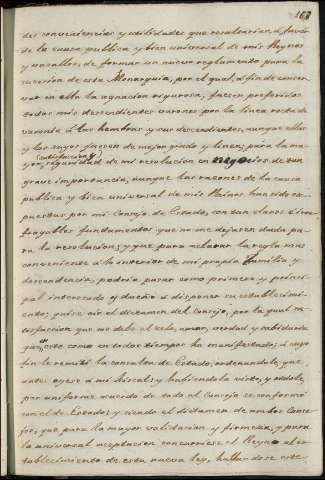 163
des conveniencias y utilidades que resultarian à favor
de la causa publica y bien universal de mis Reynos
y vasallos, de formar un nuevo reglamento para la
sucesion de esta Monarquia, por el qual, à fin de conser
var en ella la agnacion rigurosa, fuesen preferidos
todos mis descendientes varones por la linea recta de
varonia à las hembras y sus descendientes, aunque ellas
y los suyos fuesen de mejor grado y linea; para la ma
yor satisfaccion y seguridad de mi resolucion en negocios de tan
grave importancia, aunque las razones de la causa
publica y bien universal de mis Reinos han sido ex
puestas por mi Consejo de Estado, con tan claros è irre
fragables fundamentos que no me dejasen duda pa
ra la resolucion; y que para aclarar la regla mas
conveniente à lo interior de mi propia familia y
descendencia, podria pasar como primero y princi
pal interesado y dueño à disponer su establecimi
ento; quise oir el dictamen del Consejo, por la igual sa
tisfaccion que me debe el zelo, amor, verdad y sabiduria
que en este como en todos tiempos ha manifestado; à cuyo
fin le remiti la consulta de Estado, ordenandole, que
antes oyese à mi Fiscal; y habiendola visto, y oidole,
por uniforme acuerdo de todo el Consejo se conformò
con el de Estado; y siendo el dictamen de ambos Conse
jos, que para la mayor validacion y firmeza, y para
la universal aceptacion concurriese el Reyno al es
tablecimiento de esta nueva ley, hallandose este